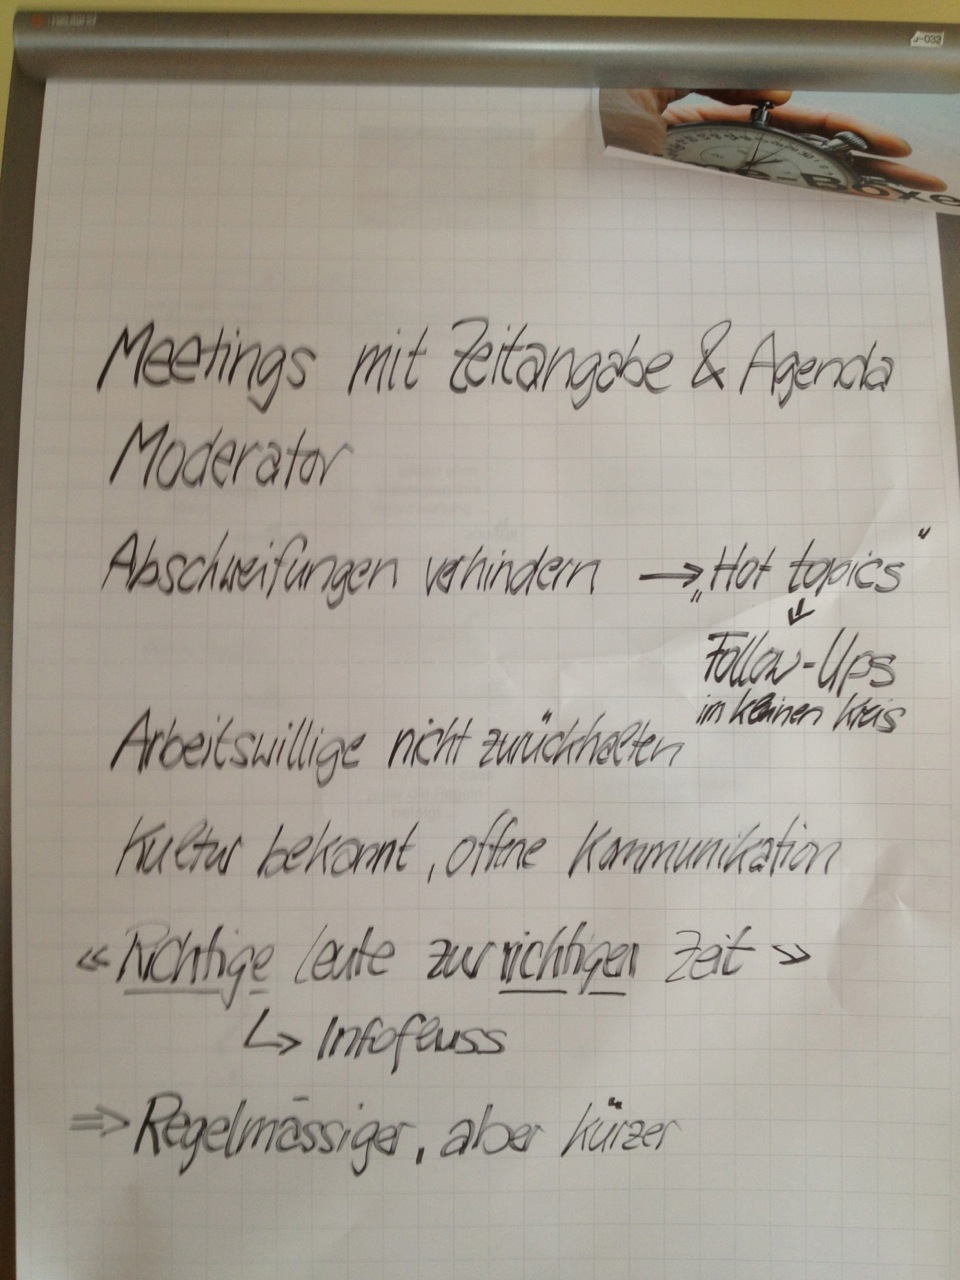 J-032
e-Boxe
Meetings mit Zeitangabe & Agenda
Moderator
Abschweifungen verhindern → „Hot topics"
Follow-Ups
im kleinen Kreis
Arbeitswillige nicht zurückhalten
Kultur bekannt, offene Kommunikation
« Richtige Leute zur richtigen Zeit »
↳ Infofluss
⇒ Regelmässiger, aber kürzer